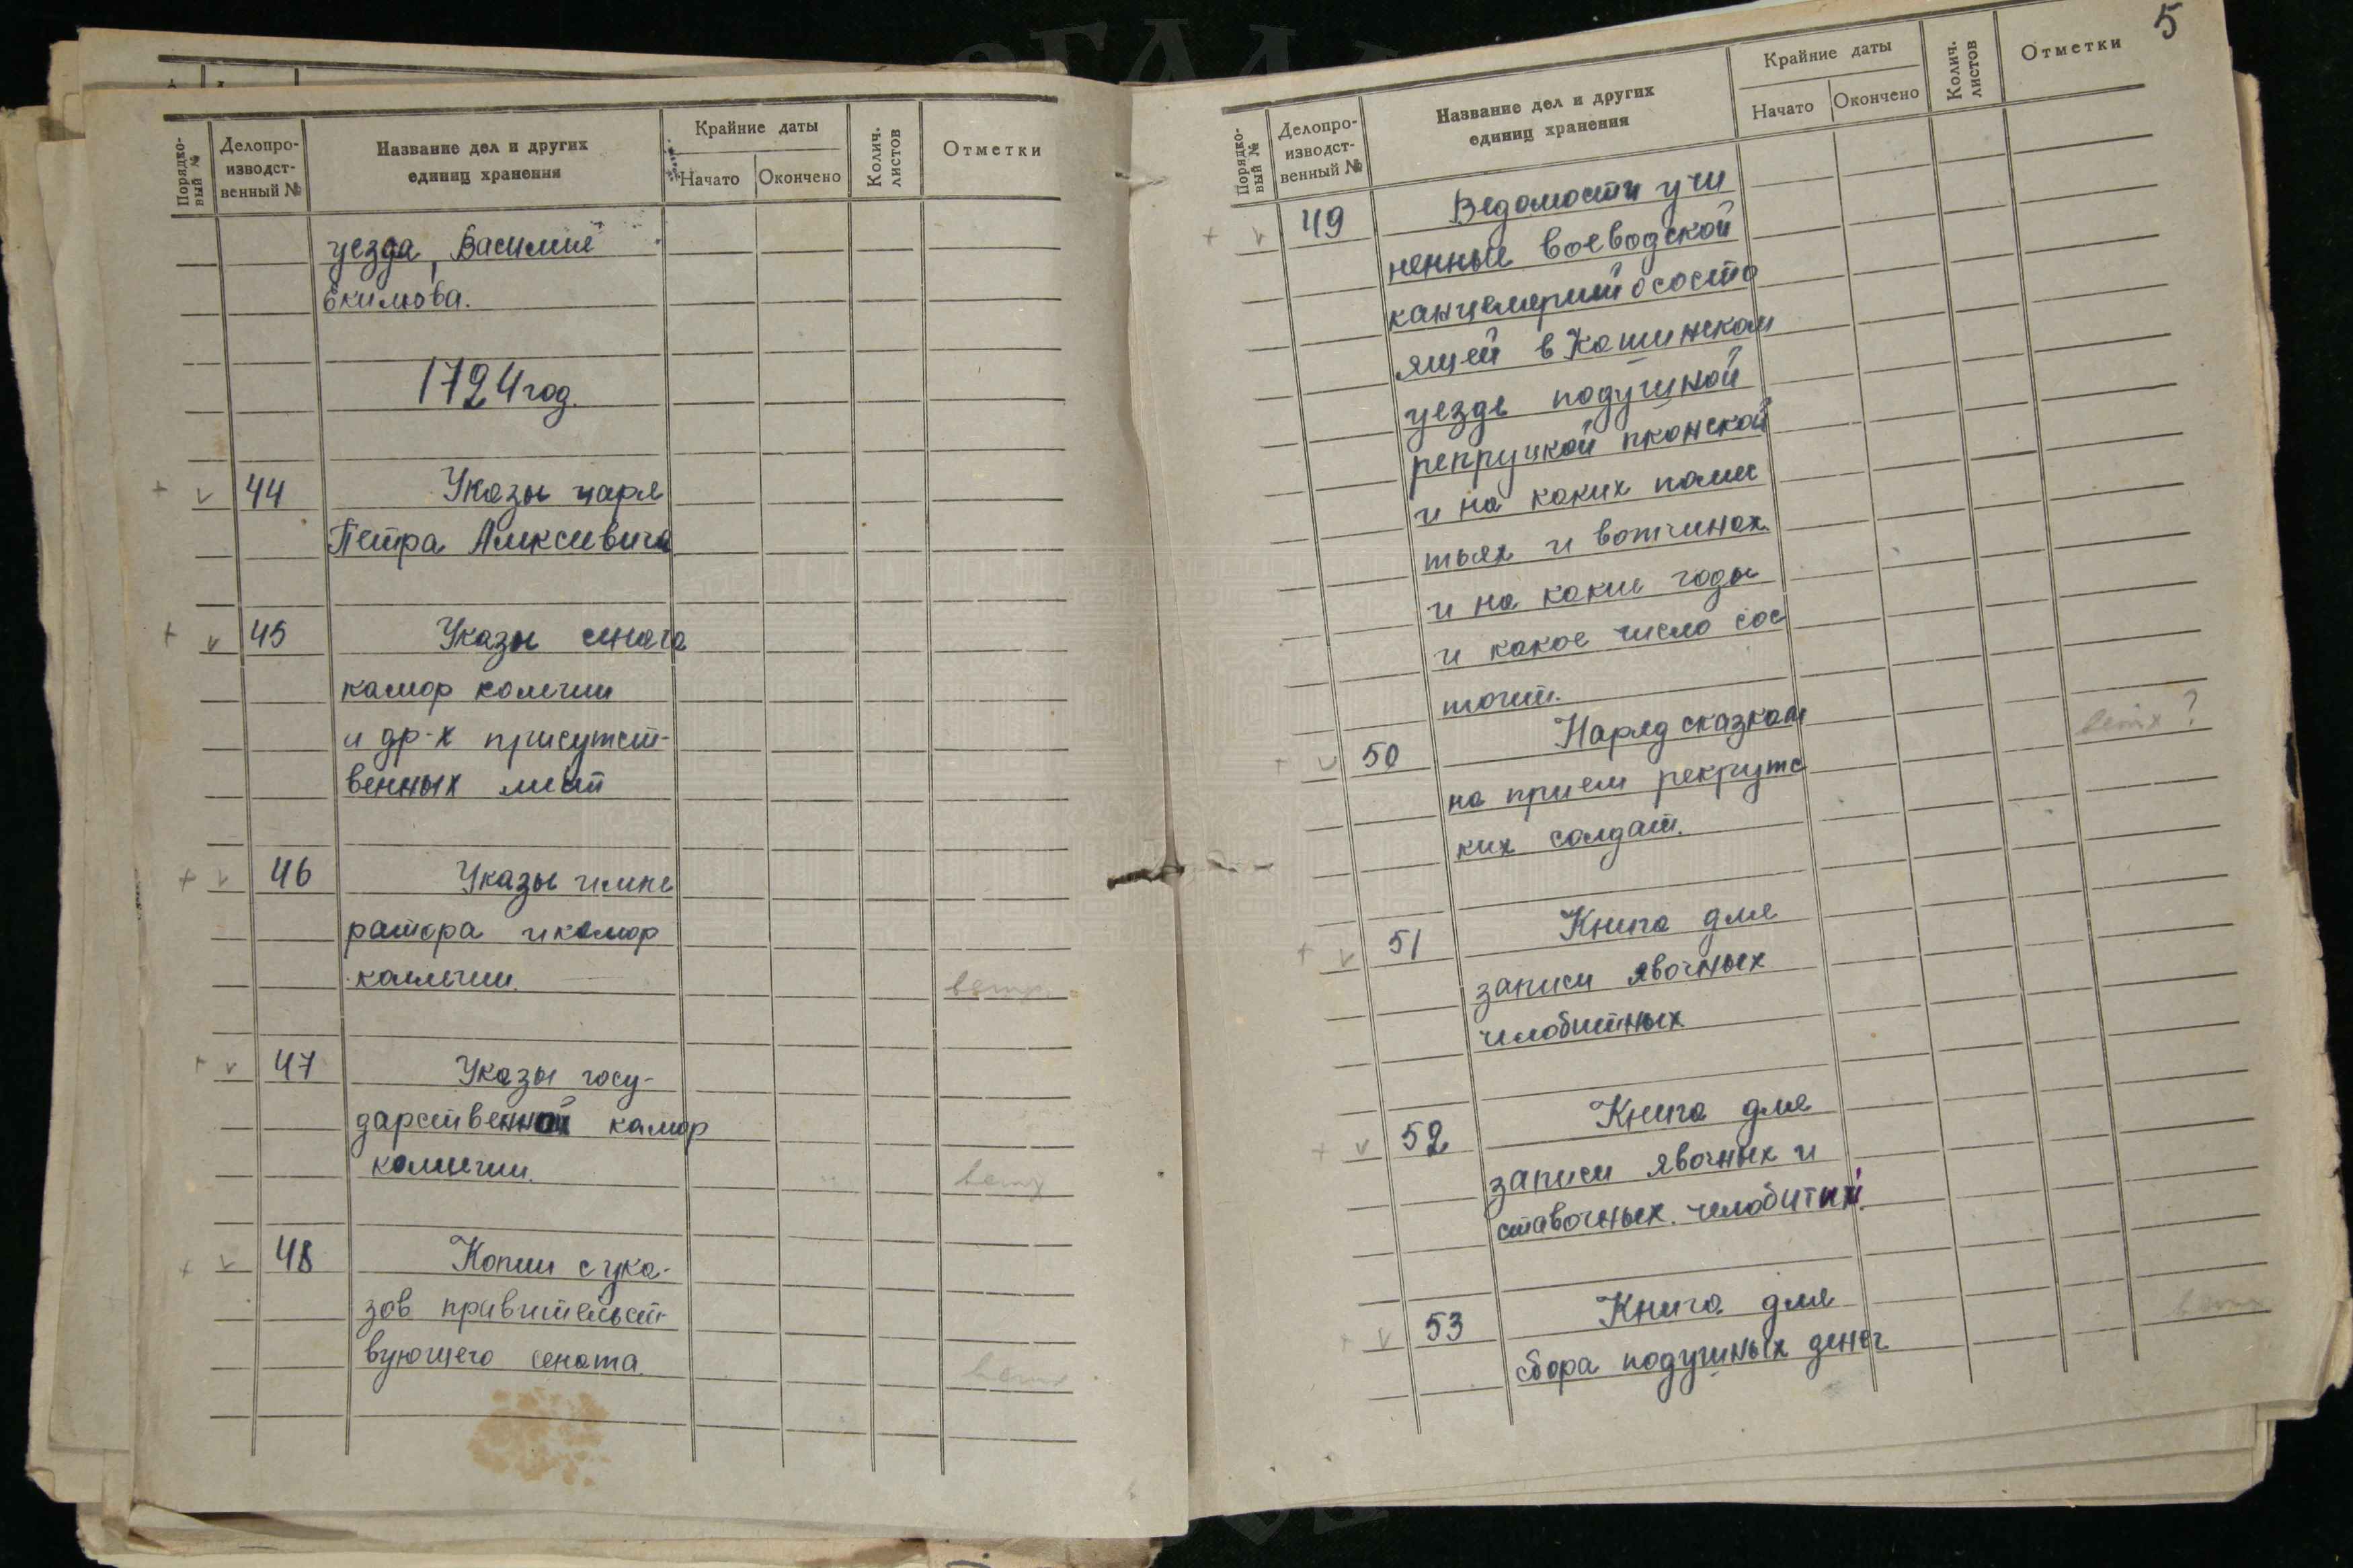 Порядко-
вый №
Делопро-
изводст-
венный №
Название дел и других
единиц хранения
Крайние даты
Начато
Окончено
Колич.
листов
Отметки
уезда, Василия
Екимова.
1724 год.
+ v 44 Указы царя
Петра Алексеевича
+ v 45 Указы
камор колегии
и др-х присутст-
венных мест
+ v 46 Указы импе
ратора и камор
коллегии.
ветх.
+ v 47 Указы госу-
дарственной камор
колегии.
ветх
+ v 48 Копии с ука-
зов правительст-
вующего сената.
ветх
5
Порядко-
вый №
Делопро-
изводст-
венный №
Название дел и других
единиц хранения
Крайние даты
Начато
Окончено
Колич.
листов
Отметки
+ v 49 Ведомости учи
ненные воеводской
канцелярией о состо
ящей в Кашинском
уезде подушной
рекруцкой
и на каких помес
тьях и вотчинах
и на какие годы
и какое число сос
тоит.
+ v 50 Наряд сказкам
ветх ?
на прием рекрутс
ких солдат.
+ v 51 Книга для
записи явочных
челобитных
+ v 52 Книга для
записи явочных и
ставочных челобитных
+ v 53 Книга для
сбора подушных денег
ветх